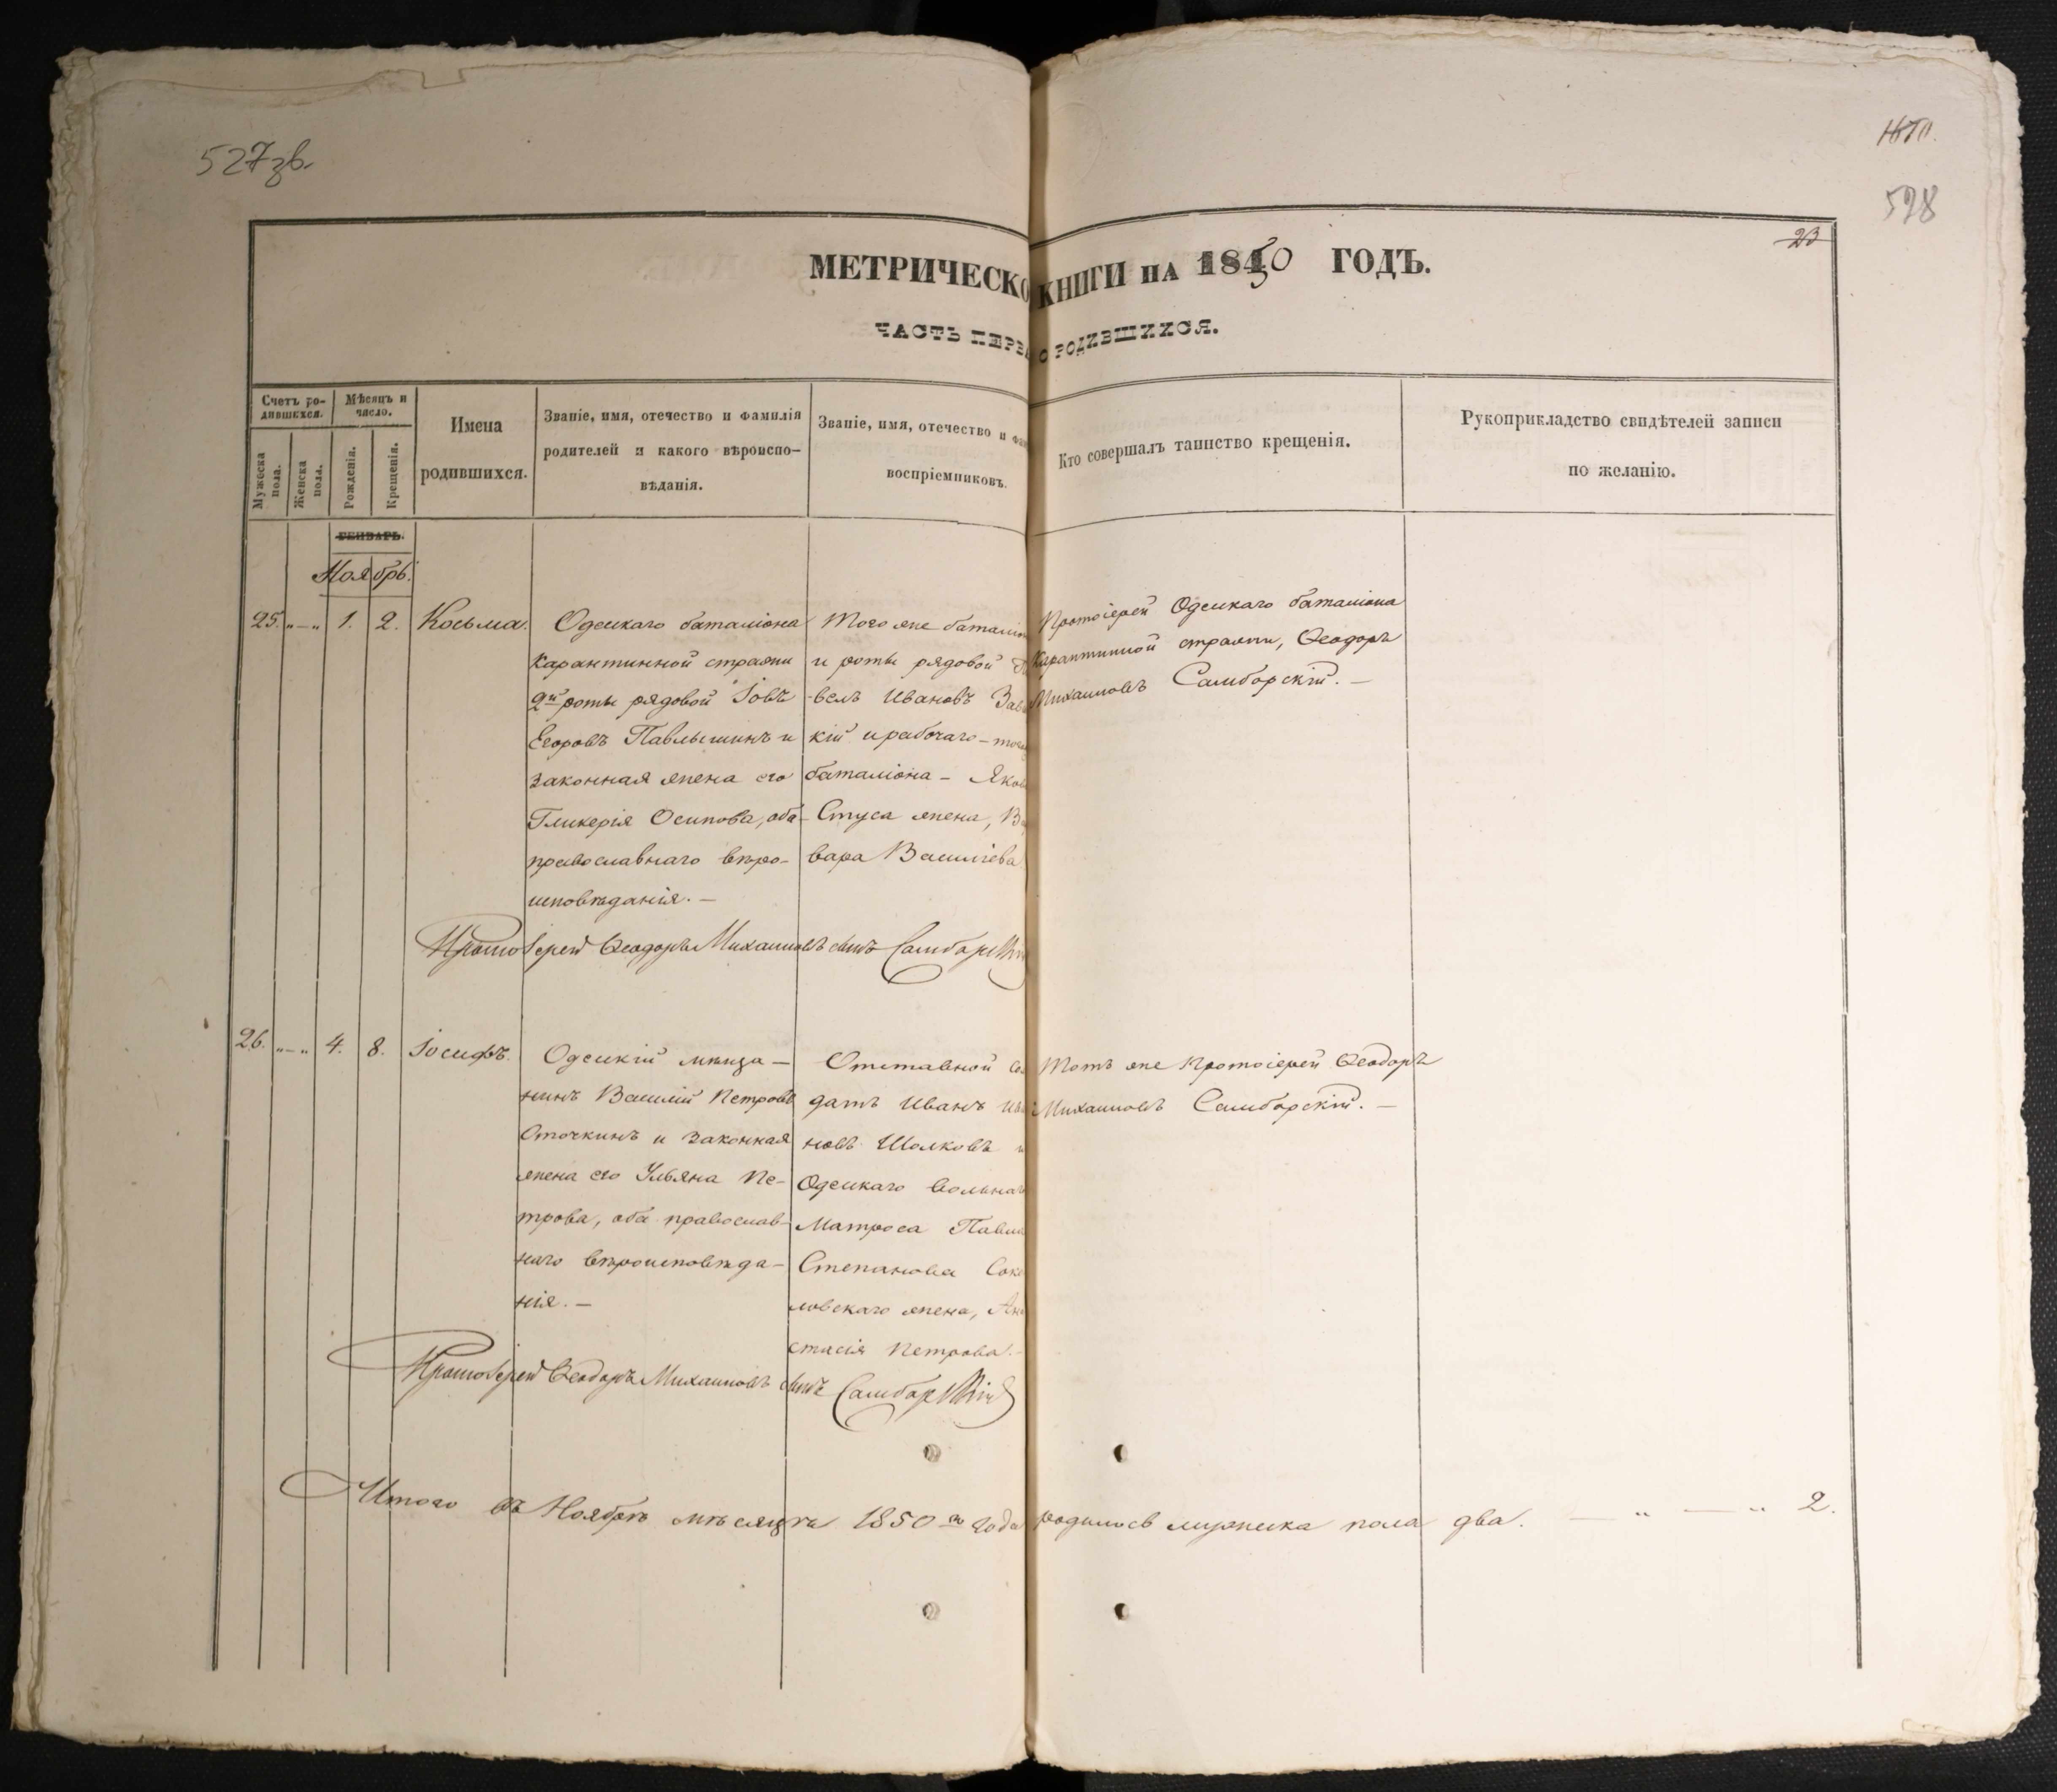 527 зв.
528
23
МЕТРИЧЕСКО КНИГИ НА 1850 ГОДЪ.
ЧАСТЬ ПЕРВА О РОДИВШИХСЯ.
Счетъ родившихся.
Мужеска пола.
Женска пола.
Мѣсяцъ и число.
Рожденія.
Крещенія.
Имена
родившихся.
Званіе, имя, отечество и фамилія
родителей и какого вѣроиспо-
вѣданія.
Званіе, имя, отечество и фам
воспріемниковъ.
Кто совершалъ таинство крещенія.
Рукоприкладство свидѣтелей записи
по желанію.
ГЕНВАРЬ.
Ноябрь.
25. „—„ 1. 2. Косьма.
Одескаго баталіона
Карантинной стражи
2й роты рядовой Іовъ
Егоровъ Павлышинъ и
законная жена его
Гликерія Осипова, оба
православнаго вѣро-
исповѣданія.—
Того же баталіо
и роты рядовой
велъ Ивановъ Зав
кій и рабочаго – того
баталіона – Яков
Стуса жена, Ва
вара Василіева
Протоіерей Одескаго баталіона
Карантинной стражи, Ѳеодоръ
Михаиловъ Самборскій.—
Протоіерей Ѳеодоръ Михаиловъ сынъ Самборскій
26. „—„ 4. 8. Іосифъ.
Одескій мѣща—
нинъ Василій Петровъ
Сточкинъ и законная
жена его Ульяна Пе-
трова, оба православ-
наго вѣроисповѣда-
нія.—
Отставной сол
датъ Иванъ Ива
новъ Шолковъ и
Одескаго вольнаго
Матроса Павла
Степанова Соко
ловскаго жена, Ана
стасія Петрова.—
Тотъ же Протоіерей Ѳеодоръ
Михаиловъ Самборскій.—
Протоіерей Ѳеодоръ Михаиловъ сынъ Самборскій
Итого въ Ноябрѣ мѣсяцѣ 1850го года родилось мужеска пола два. — „ — „ 2.